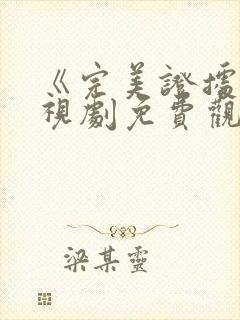 《完美證據
視劇免費觀
梁某靈